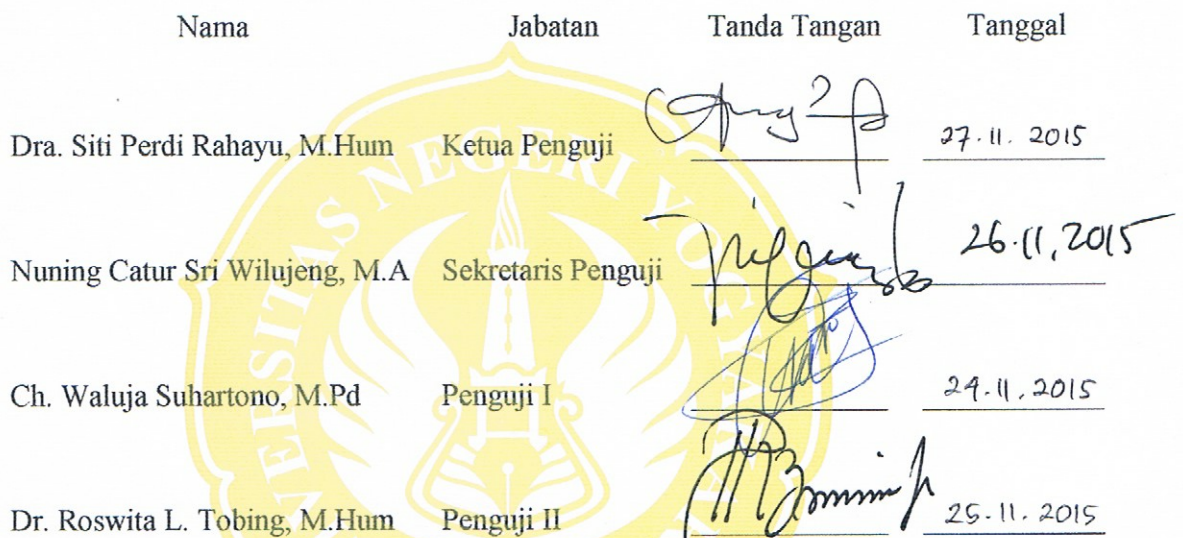 Nama Jabatan Tanda Tangan Tanggal
Dra. Siti Perdi Rahayu, M.Hum Ketua Penguji 27.11.2015
Nuning Catur Sri Wilujeng, M.A Sekretaris Penguji 26.11.2015
Ch. Waluja Suhartono, M.Pd Penguji I 24.11.2015
Dr. Roswita L. Tobing, M.Hum Penguji II 25.11.2015
NEGERI